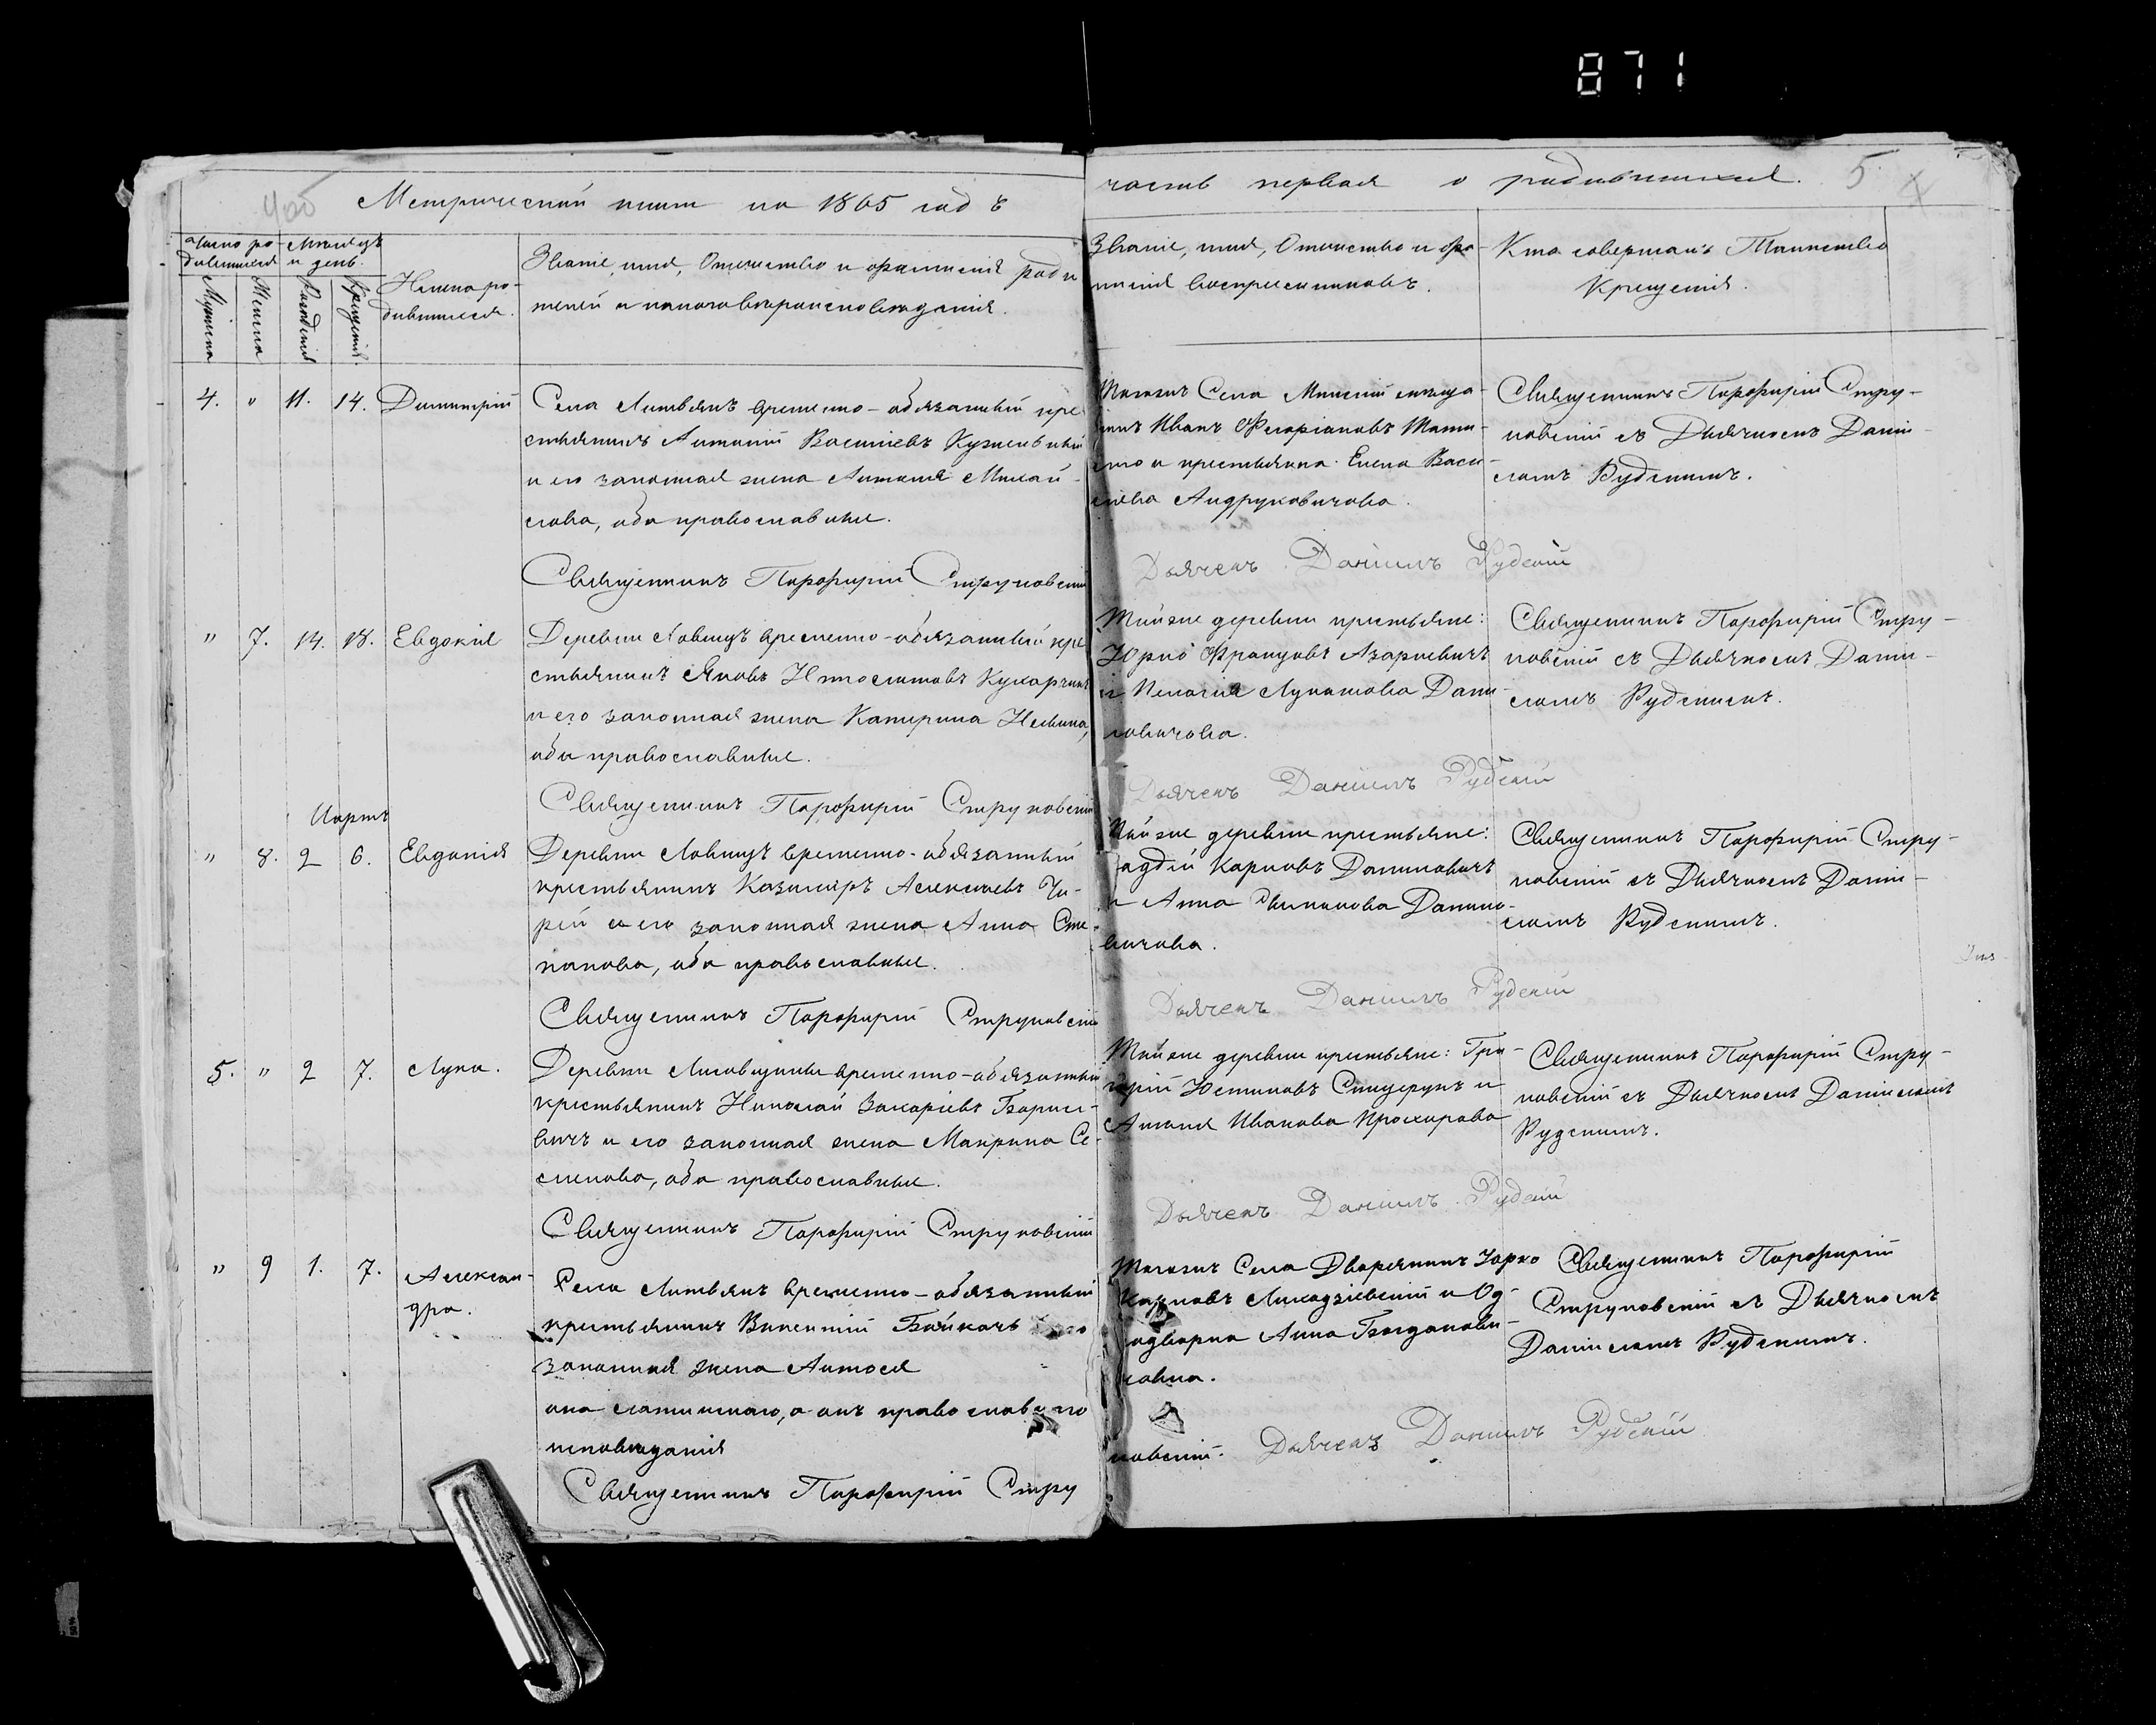 871
Метрической книги на 1865 годъ
часть первая о родившихся. 5
Число ро-
дившихся
Мѣсяцъ
и день.
Мужеска
Женска
Рожденія
Крещенія
Имена ро-
дившихся.
Званіе, имя, Отчество и фамилія роди
телей и какого вѣроисповѣданія.
Званіе, имя, Отчество и фа-
милія воспріемниковъ.
Кто совершалъ Таинство
Крещенія.
4. " 11. 14. Димитрій
Села Литвянъ временно-обязанный кре
стьянинъ Антоній Василіевъ
и его законная жена Антонія Михай-
лова, оба православные.
Священникъ Порфирій Струковскій
Тогожъ Села Минскій мѣща-
нинъ Иванъ Флоріановъ
и крестьянка Елена Васи
лева Андруковичова.
Дьячекъ Даніилъ Рудскій
Священникъ Порфирій Стру-
ковскій съ Дьячкомъ Дани-
ломъ Рудскимъ.
" 7. 14. 18. Евдокія
Деревни Ловищъ временно-обязанный кре
стьянинъ Яковъ Кухарчикъ
и его законная жена Катерина
оба православные.
Священникъ Порфирій Струковскій
Тойже деревни крестьяне:
Юрко Францовъ Азаркевичъ
и Пелагія Лукашова Дани-
ловичова.
Дьячекъ Даніилъ Рудскій
Священникъ Порфирій Стру-
ковскій съ Дьячкомъ Дани-
ломъ Рудскимъ.
Мартъ
" 8. 2 6. Евдокія
Деревни Ловищъ временно-обязанный
крестьянинъ Казимиръ Алексѣевъ
и его законная жена Анна Сте-
панова, оба православные.
Священникъ Порфирій Струковскій
Тойже деревни крестьяне:
Карповъ Даниловичъ
и Анна Данило-
вичова.
Дьячекъ Даніилъ Рудскій
Священникъ Порфирій Стру-
ковскій съ Дьячкомъ Дани-
ломъ Рудскимъ.
5. " 2 7. Лука.
Деревни временно-обязанный
крестьянинъ Николай Захаріевъ Борисе-
вичъ и его законная жена Макрина Се-
менова, оба православные.
Священникъ Порфирій Струковскій
Тойже деревни крестьяне: Гри-
горій Юстиновъ и
Антоля Иванова Прохорова
Дьячекъ Даніилъ Рудскій
Священникъ Порфирій Стру-
ковскій съ Дьячкомъ Даніиломъ
Рудскимъ.
" 9 1. 7. Алексан-
дра.
Села Литвянъ временно-обязанный
крестьянинъ Викентій Бойкачъ
законная жена Антося
она латинскаго, а онъ православнаго
исповѣданія
Священникъ Порфирій Стру
ковскій.
Тогожъ Села Дворянинъ
Карповъ и Од-
нодворка Анна Богданови-
човна.
Дьячекъ Даніилъ Рудскій
Священникъ Порфирій
Струковскій съ Дьячкомъ
Даніиломъ Рудскимъ.